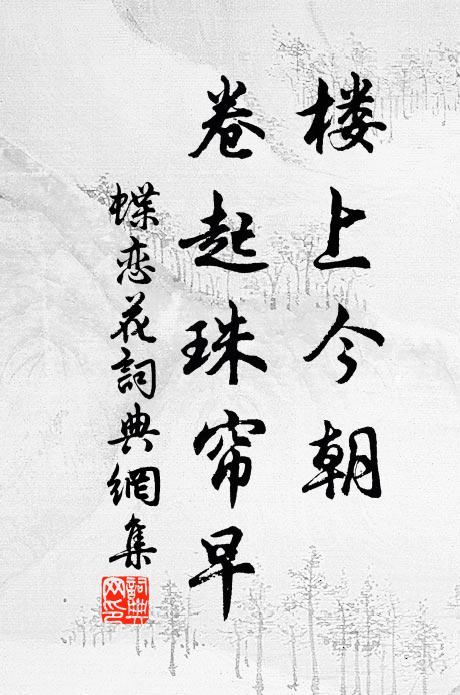 楼上今朝
卷起珠帘早
蝶恋花詞典網集
詞典网印